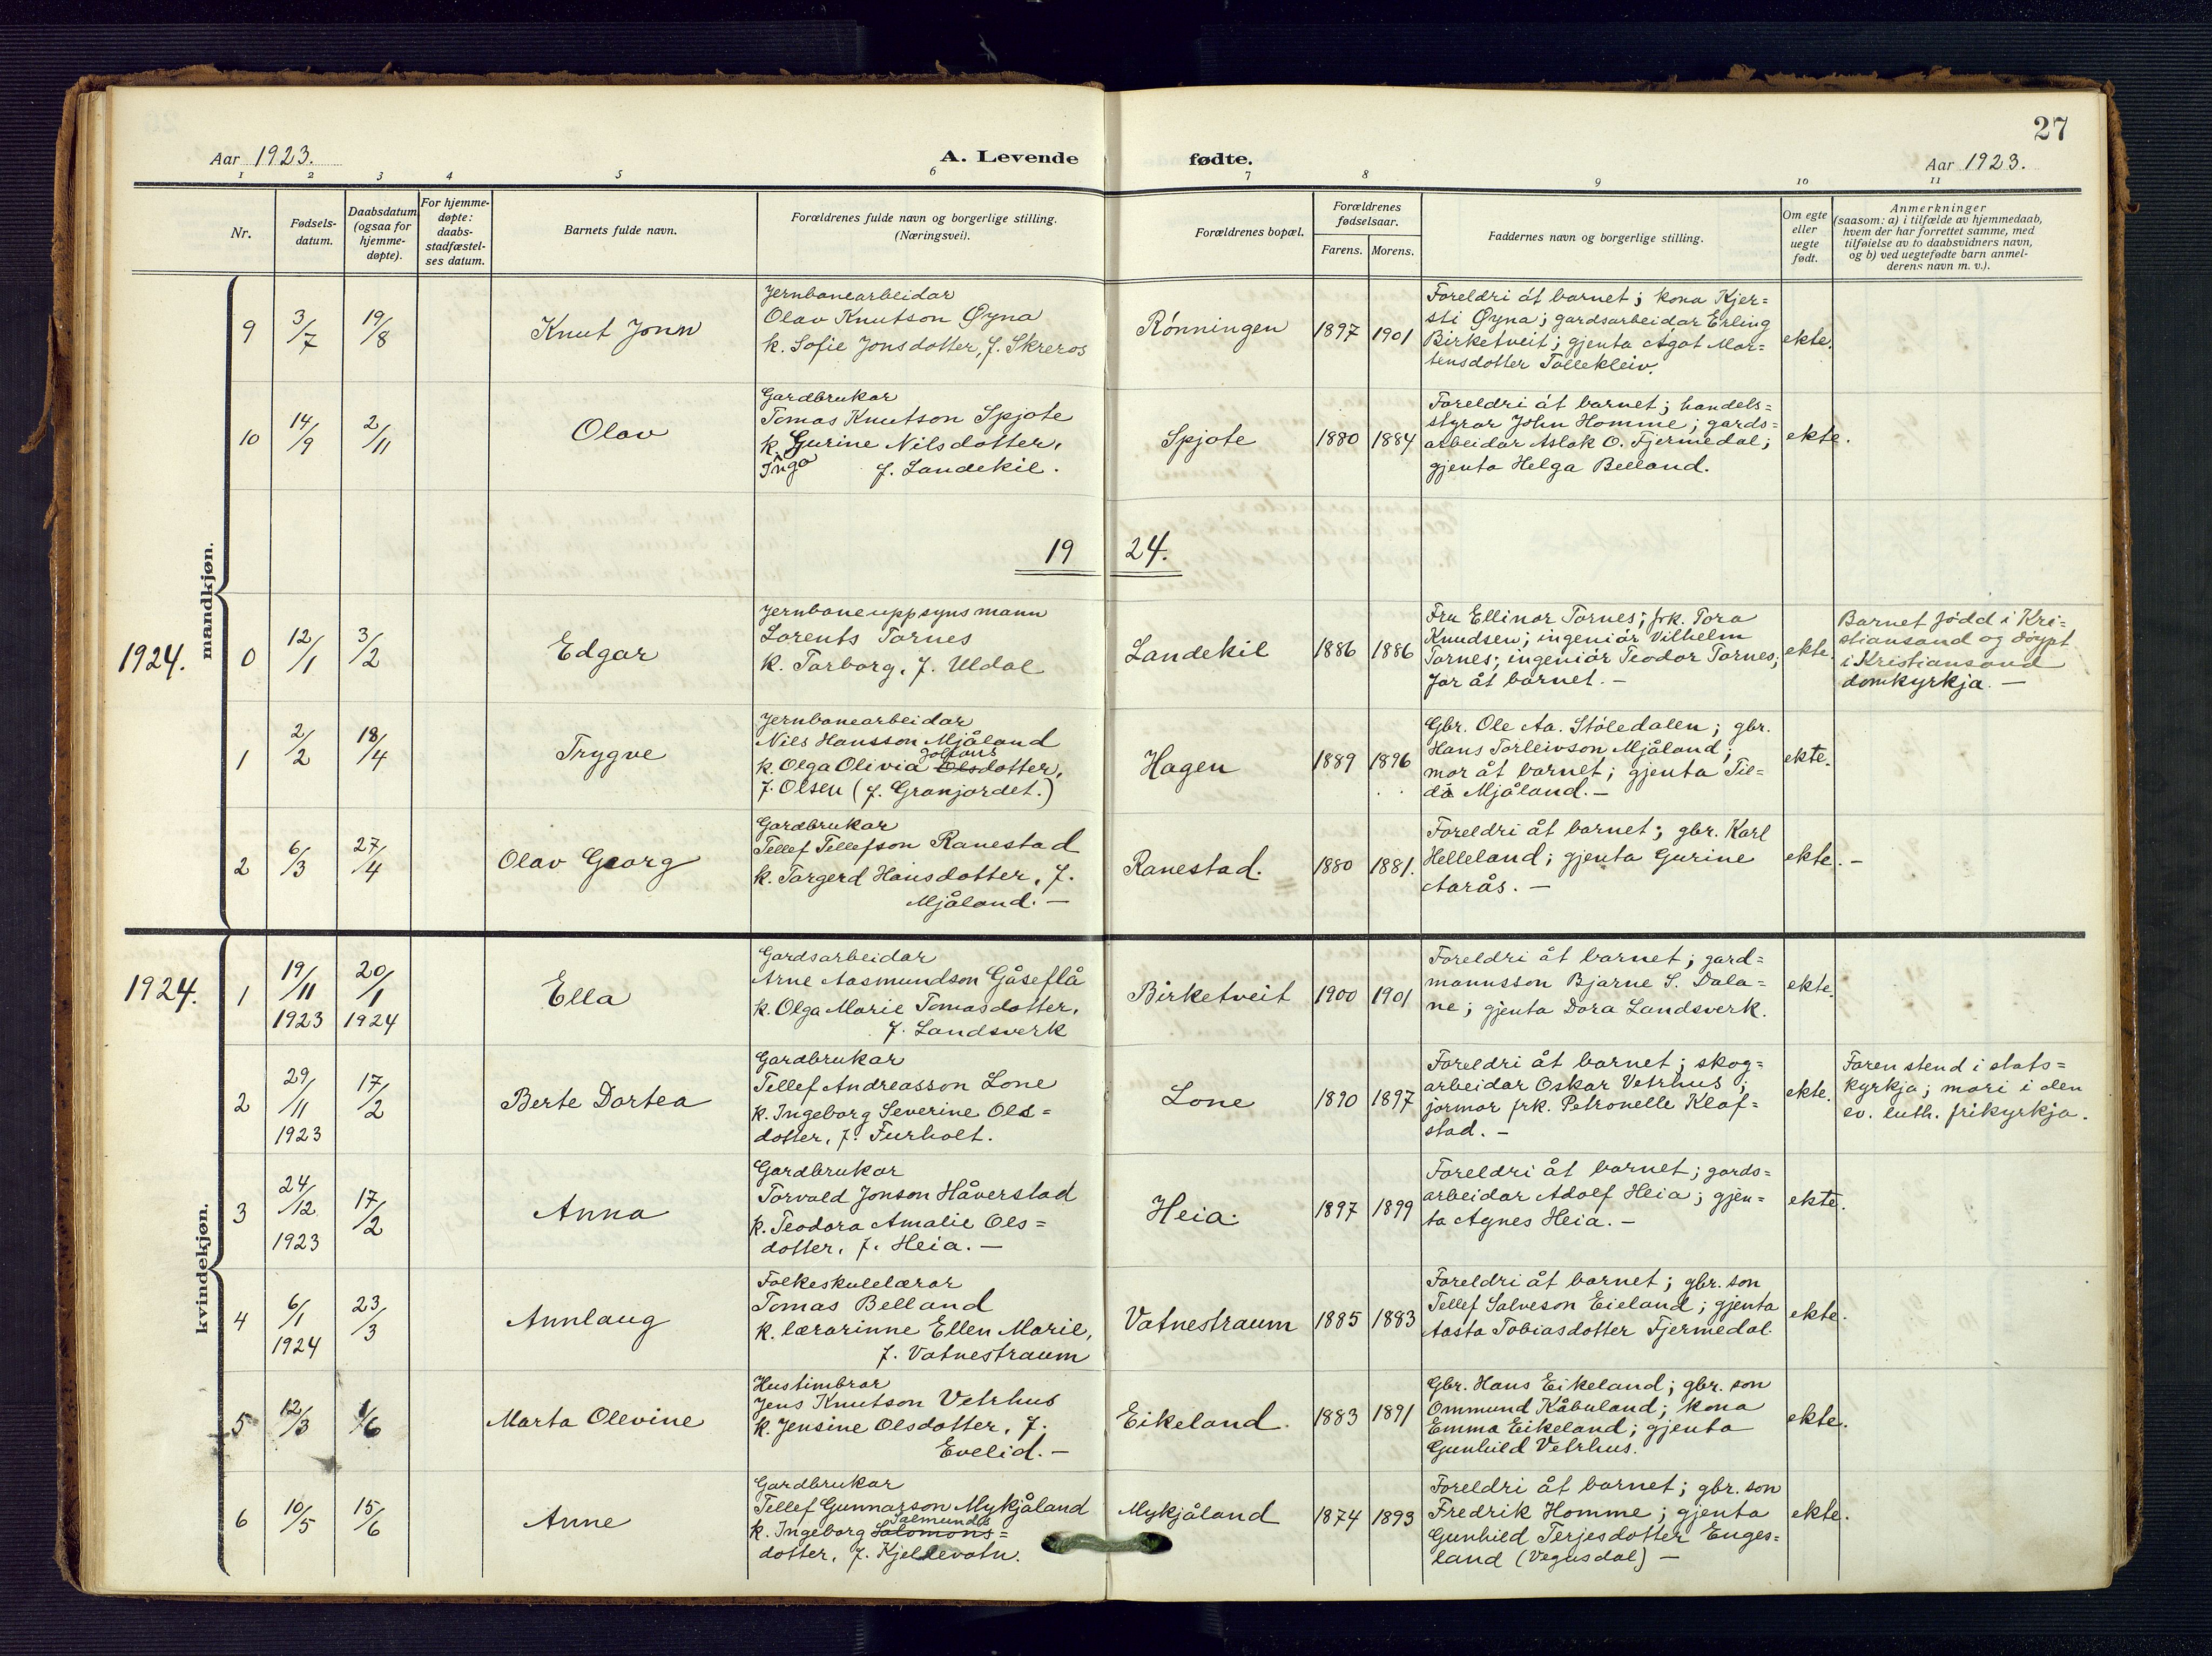 27
Aar 1923.
A. Levende fødte.
Aar 1923.
1 2 3 4 5 6 7 8 9 10 11
Nr.
Fødsels-
datum.
Daabsdatum
(ogsaa for
hjemme-
døpte).
For hjemme-
døpte:
daabs-
stadfæstel-
ses datum.
Barnets fulde navn.
Forældrenes fulde navn og borgerlige stilling.
(Næringsvei).
Forældrenes bopæl.
Forældrenes
fødselsaar.
Farens. Morens.
Faddernes navn og borgerlige stilling.
Om egte
eller
uegte
født.
Anmerkninger
(saasom: a) i tilfælde av hjemmedaab,
hvem der har forrettet samme, med
tilføielse av to daabsvidners navn,
og b) ved uegtefødte barn anmel-
derens navn m. v.).
mandkjøn.
9
3/7
19/8
Knut Jonn
Jernbanearbeidar
Olav Knutson Øyna
k. Sofie Jonsdotter, f. Skreros
Rönningen
1897 1901
Foreldri åt barnet; kona Kjer=
sti Øyna; gardsarbeidar Erling
Birketveit; gjenta Ågot Mor=
tensdotter Tollekleiv.
ekte.
10
14/9
2/11
Olav
Gardbrukar
Tomas Knutson Spjote
k. Gurine Nilsdotter,
Inga f. Landekil.
Spjote
1880 1884
Foreldri åt barnet; handels=
styrar John Homme; gards=
arbeidar Aslak O. Fjermedal;
gjenta Helga Belland.
ekte.
19 24.
1924.
0
12/1
3/2
Edgar
Jernbaneuppsynsmann
Lorents Tornes
k. Torborg, f. Uldal
Landekil
1886 1886
Fru Ellinor Tornes; frk. Tora
Knudsen; ingeniör Vilhelm
Tornes; ingeniör Teodor Tornes;
far åt barnet. —
ekte.
Barnet född i Kri=
stiansand og döypt
i Kristiansand
domkyrkja. —
1
2/2
18/4
Trygve
Jernbanearbeidar
Nils Hansson Mjåland
k. Olga Olivia Olsdotter,
f. Olsen (f. Granjordet.)
Hagen
1889 1896
Gbr. Ole Aa. Stöledalen; gbr.
Hans Torleivson Mjåland;
mor åt barnet; gjenta Til=
da Mjåland. —
ekte.
2
6/3
27/4
Olav Georg
Gardbrukar
Tellef Tellefson Ranestad
k. Torgerd Hansdotter, f.
Mjåland. —
Ranestad.
1880 1881.
Foreldri åt barnet; gbr. Karl
Helleland; gjenta Gurine
Aarås. —
ekte. —
kvindekjøn.
1924.
1
19/11
1923
20/1
1924
Ella
Gardsarbeidar
Arne Aasmundson Gåseflå
k. Olga Marie Tomasdotter,
f. Landsverk
Birketveit
1900 1901
Foreldri åt barnet; gard=
mannsson Bjarne S. Dala=
ne; gjenta Dora Landsverk.
ekte.
2
29/11
1923
17/2
Berte Dortea
Gardbrukar
Tellef Andreasson Lone
k. Ingeborg Severine Ols=
dotter, f. Furholt.
Lone
1890 1897
Foreldri åt barnet; skog=
arbeidar Oskar Vetrhus;
jormor frk. Petronelle Klaf=
stad. —
ekte.
Faren stend i stats=
kyrkja; mori i den
ev. luth. frikyrkja.
3
24/12
1923
17/2
Anna
Gardbrukar
Torvald Jonson Håverstad
k. Teodora Amalie Ols=
dotter, f. Heia. —
Heia.
1897 1899
Foreldri åt barnet; gards=
arbeidar Adolf Heia; gjen=
ta Agnes Heia. —
ekte.
4
6/1
1924
23/3
Annlaug
Folkeskulelærar
Tomas Belland
k. lærarinne Ellen Marie,
f. Vatnestraum
Vatnestraum
1885 1883
Foreldri åt barnet; gbr. son
Tellef Salveson Eieland; gjenta
Aasta Tobiasdotter Fjermedal.
ekte.
5
12/3
1/6
Marta Olevine
Hustimbrar
Jens Knutson Vetrhus
k. Jensine Olsdotter, f.
Evelid. —
Eikeland.
1883 1891
Gbr. Hans Eikeland; gbr. son
Ommund Kåbuland; kona
Emma Eikeland; gjenta
Gunhild Vetrhus.
ekte.
6
10/5
15/6
Anne
Gardbrukar
Tellef Gunnarson Mykjåland
Salmunds
k. Ingeborg Salomons=
dotter, f. Kjellevatn.
Mykjåland
1874 1893
Foreldri åt barnet; gbr. son
Fredrik Homme; gjenta
Gunhild Terjesdotter Enges=
land (Vegusdal) —
ekte.